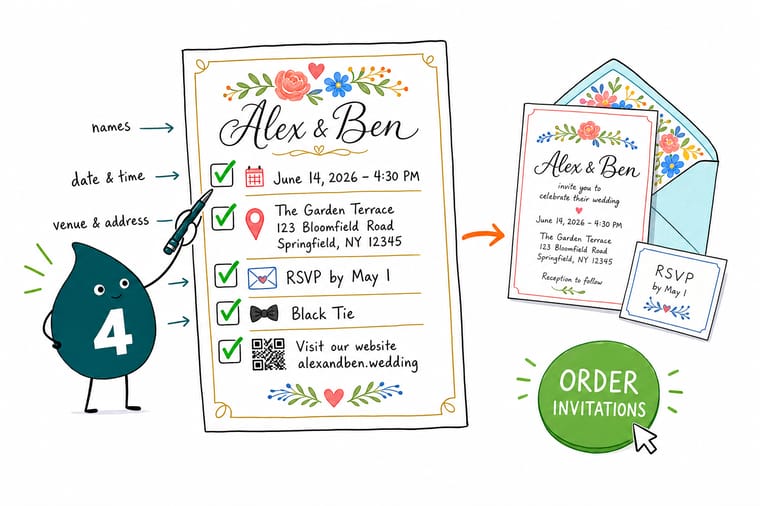 names
date & time
venue & address
4
Alex & Ben
June 14, 2026 – 4:30 PM
The Garden Terrace
123 Bloomfield Road
Springfield, NY 12345
RSVP by May 1
Black Tie
Visit our website
alexandben.wedding
Alex & Ben
invite you to
celebrate their wedding
June 14, 2026 – 4:30 PM
The Garden Terrace
123 Bloomfield Road
Springfield, NY 12345
Reception to follow
RSVP
by May 1
ORDER
INVITATIONS